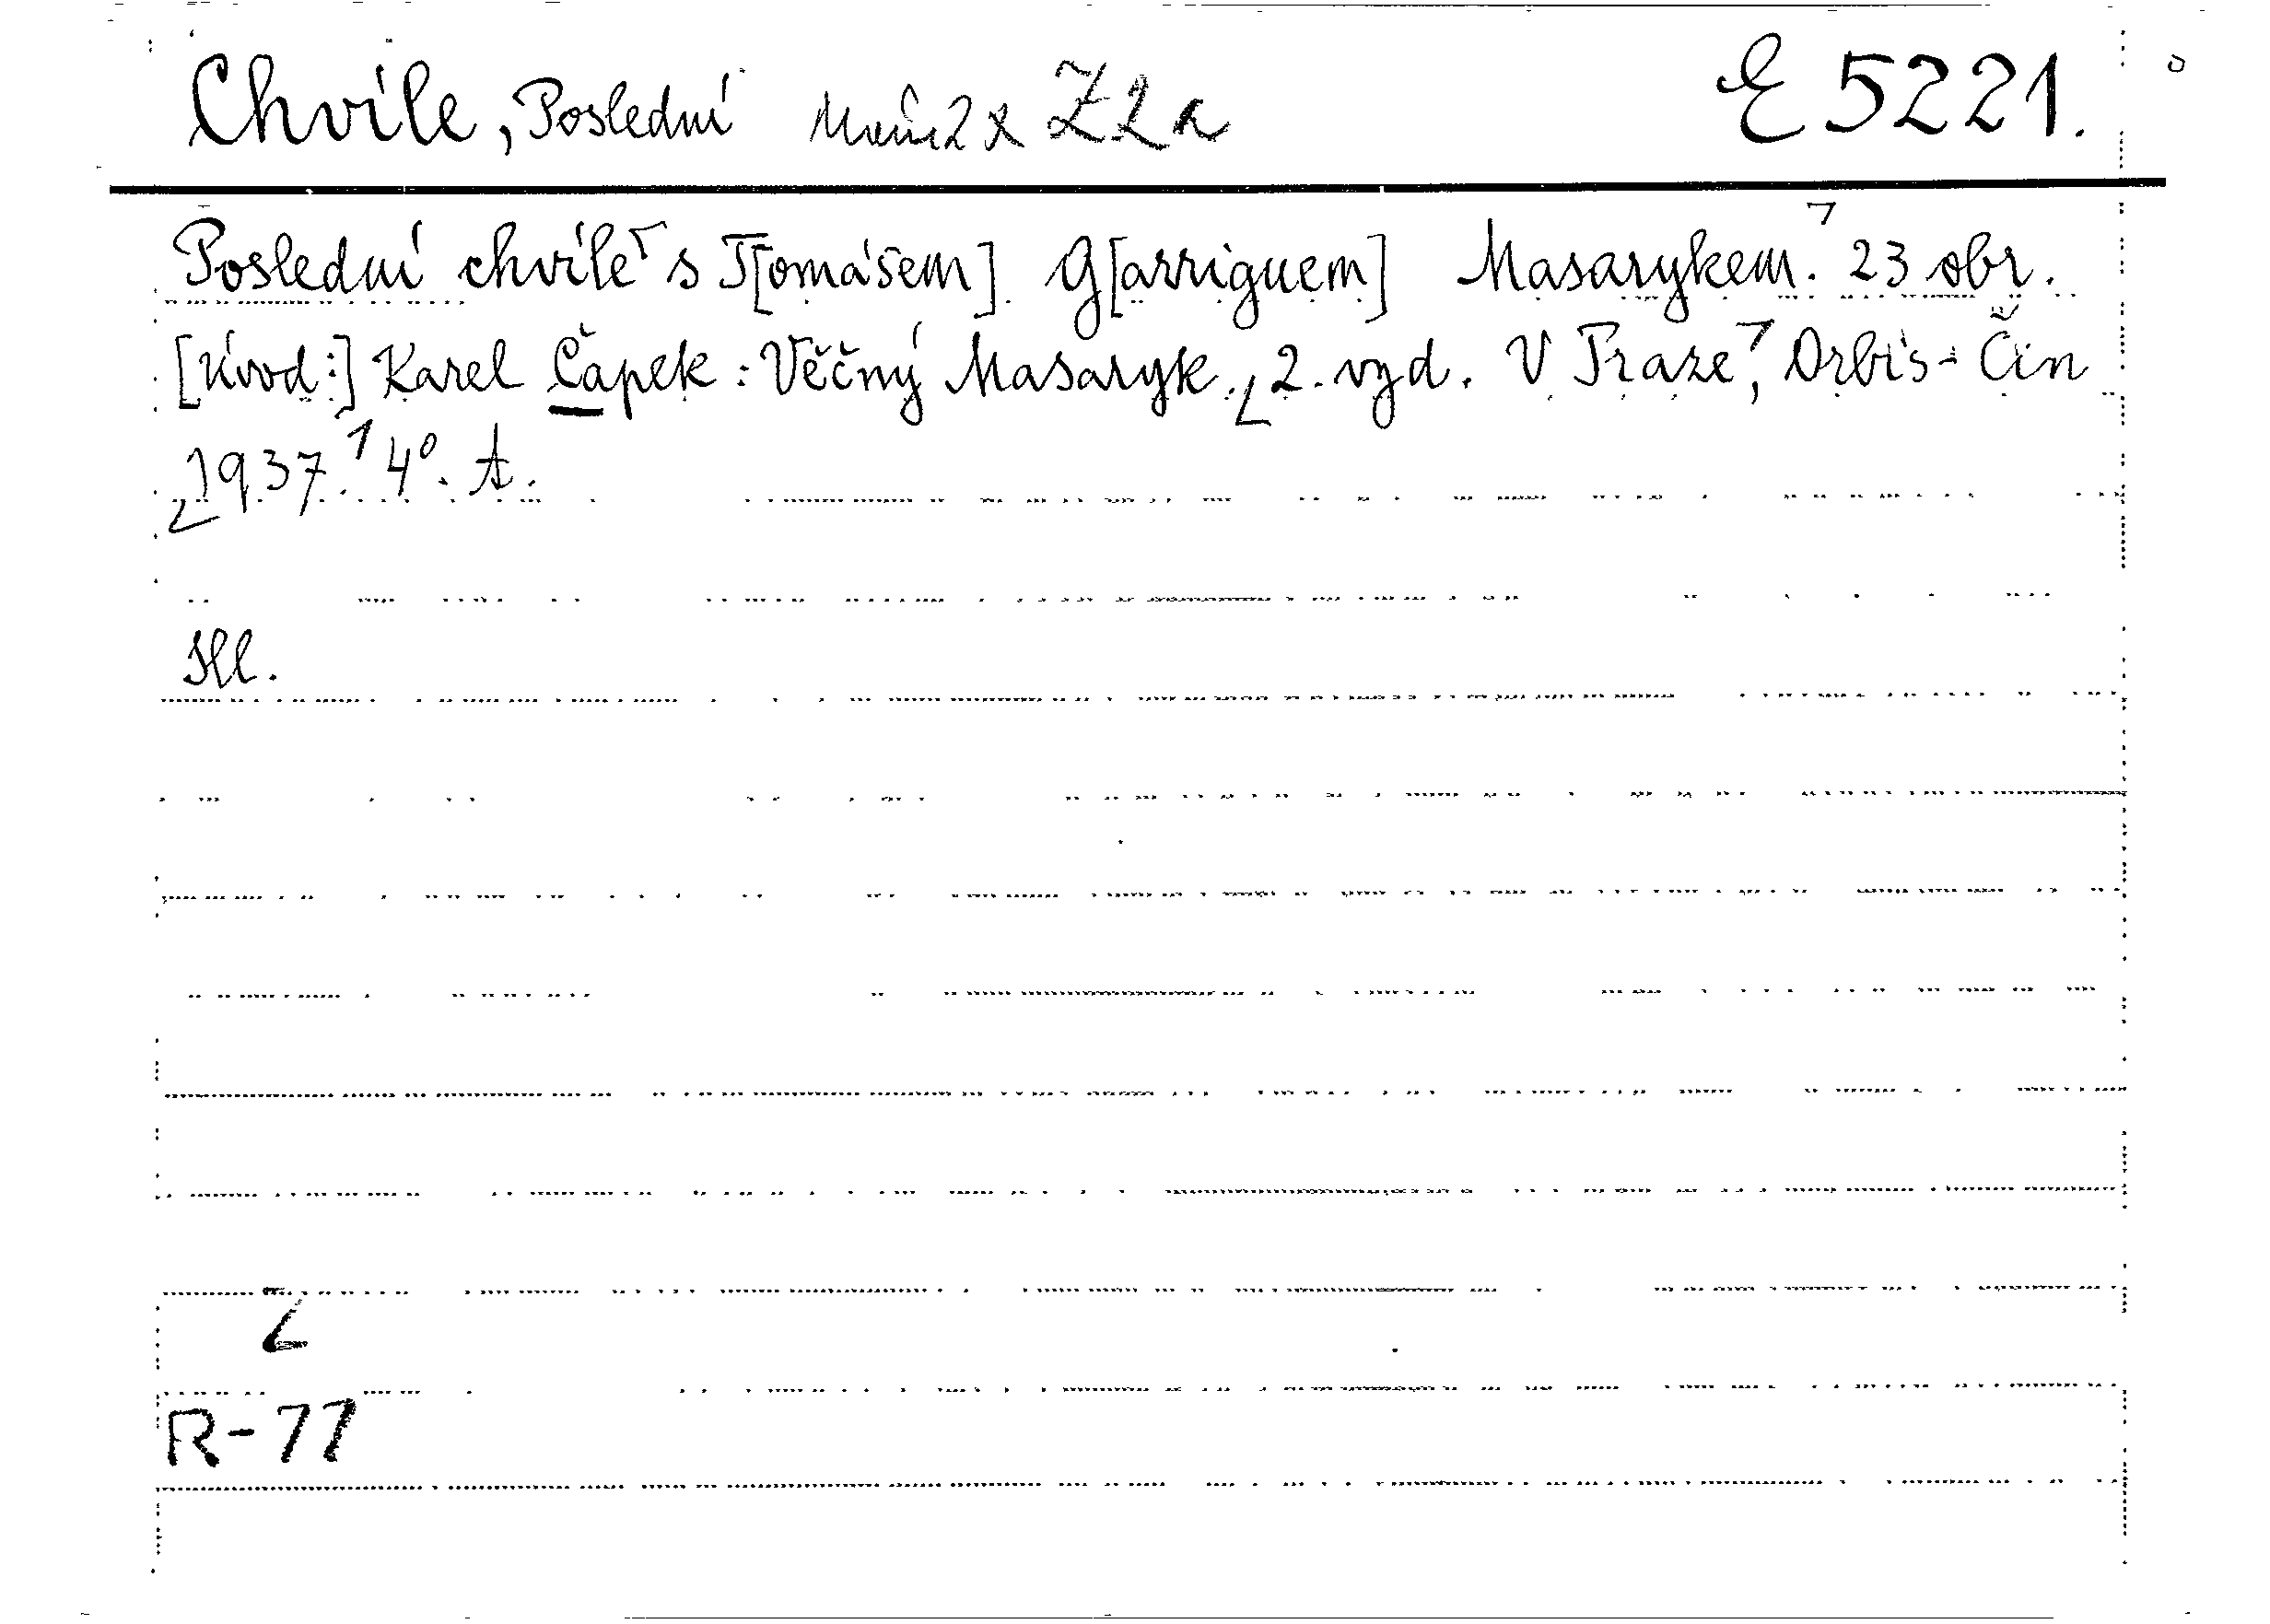 Chvíle, Poslední 2x Z2a E 5221.
Poslední chvíle s T[omášem] G[arriguem] Masarykem. 23 obr.
[Úvod:] Karel Čapek: Věčný Masaryk. 2. vyd. V Praze, Orbis-Čin
1937. 4°. A.
Hl.
Z
R-77